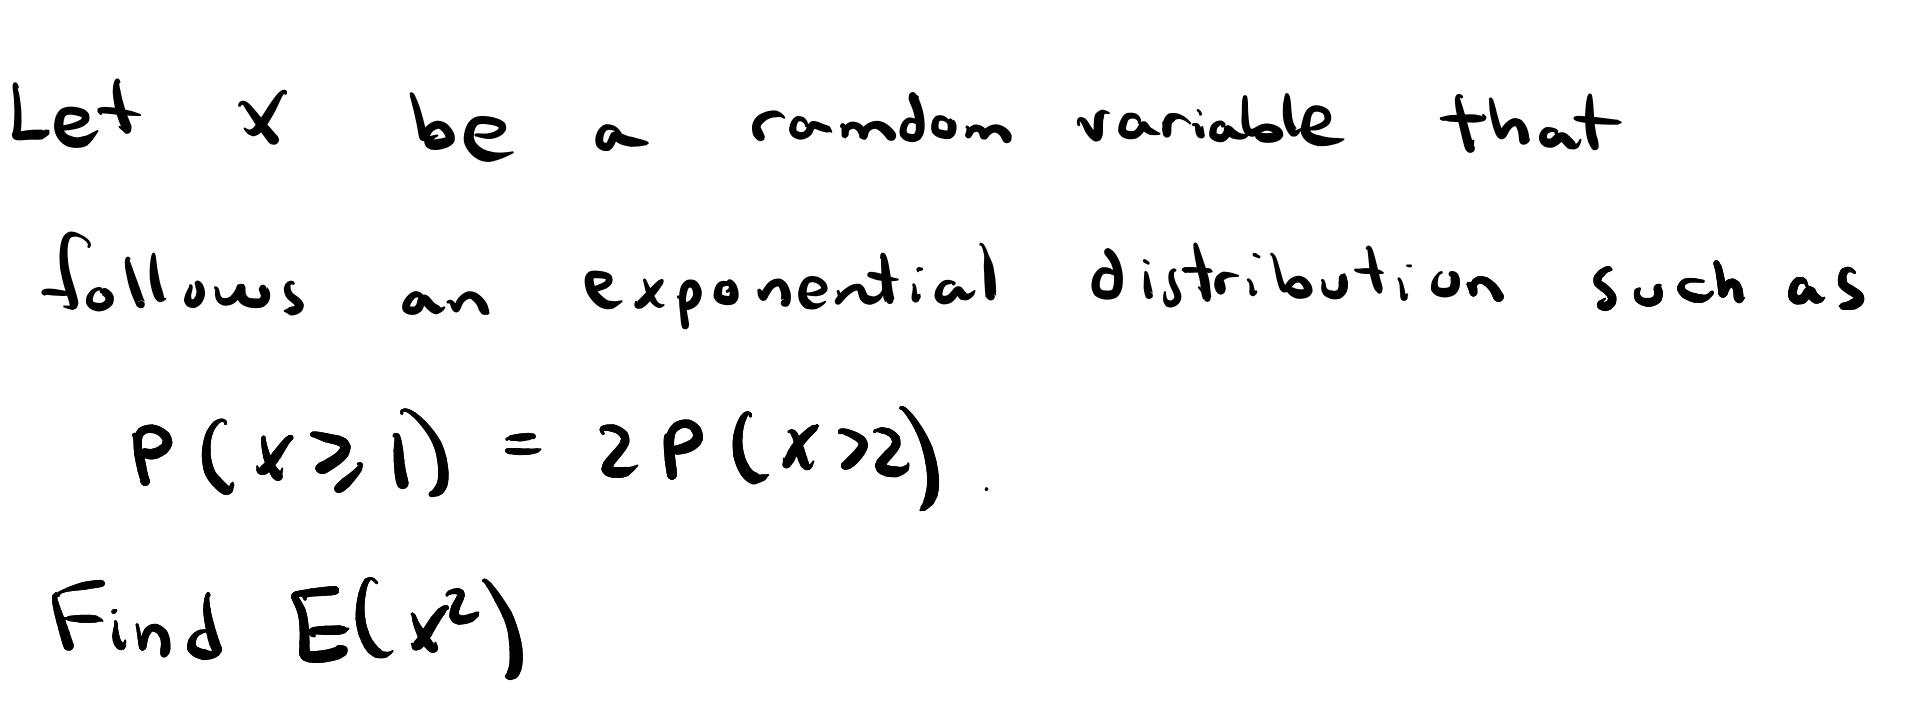 Let x be a random variable that
follows an exponential distribution such as
P(x⩾1) = 2P(x>2).
Find E(x²)